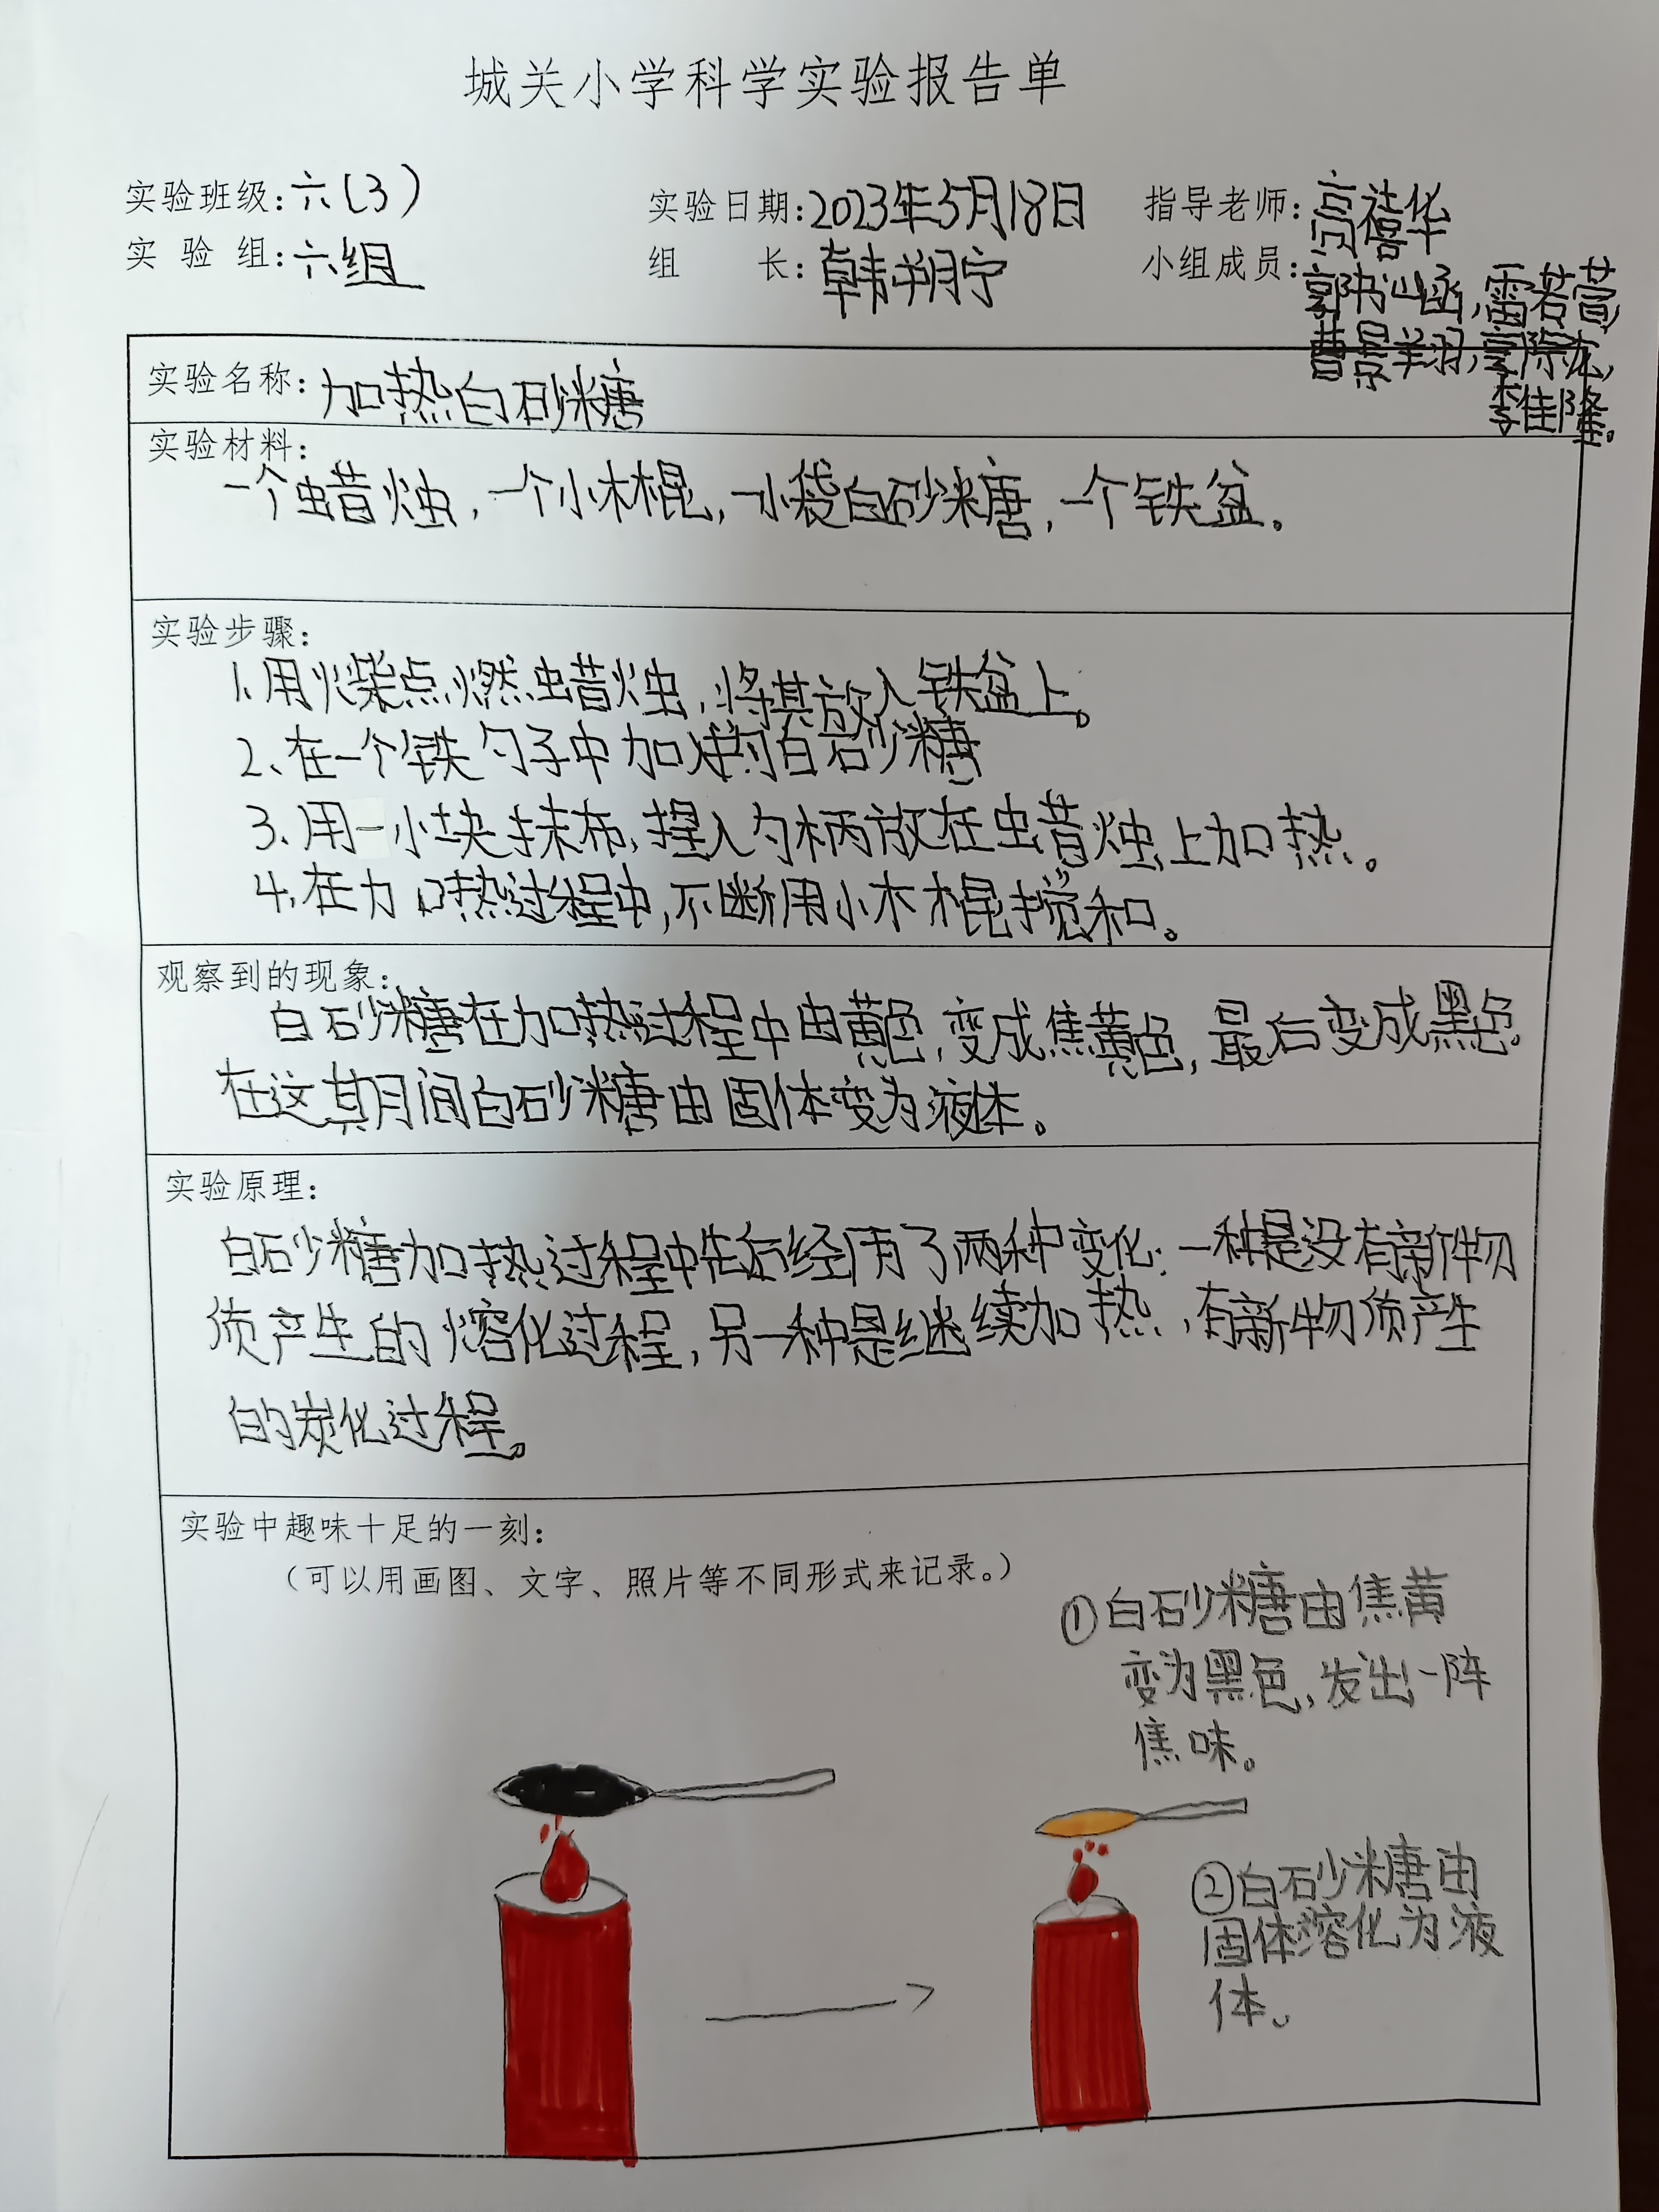 城关小学科学实验报告单
实验班级:六(3) 实验日期:2023年5月18日 指导老师:高禧华
实验组:六组 组长:韩朔宁 小组成员:
雷若萱
李佳隆。
实验名称:加热白砂糖
实验材料:
一个蜡烛,一个小木棍,一小袋白砂糖,一个铁盆。
实验步骤:
1.用火柴点燃蜡烛,将其放入铁盆上。
2、在一个铁勺子中加满白砂糖
3、用一小块抹布,捏入勺柄放在蜡烛上加热。
4,在加热过程中,不断用小木棍搅和。
观察到的现象:
白砂糖在加热过程中由黄色,变成焦黄色,最后变成黑色。
在这其期间白砂糖由固体变为液体。
实验原理:
白砂糖加热过程中先后经历了两种变化:一种是没有新物
质产生的熔化过程,另一种是继续加热,有新物质产生
的炭化过程。
实验中趣味十足的一刻:
(可以用画图、文字、照片等不同形式来记录。)
①白砂糖由焦黄
变为黑色,发出一阵
焦味。
②白砂糖由
固体溶化为液
体。